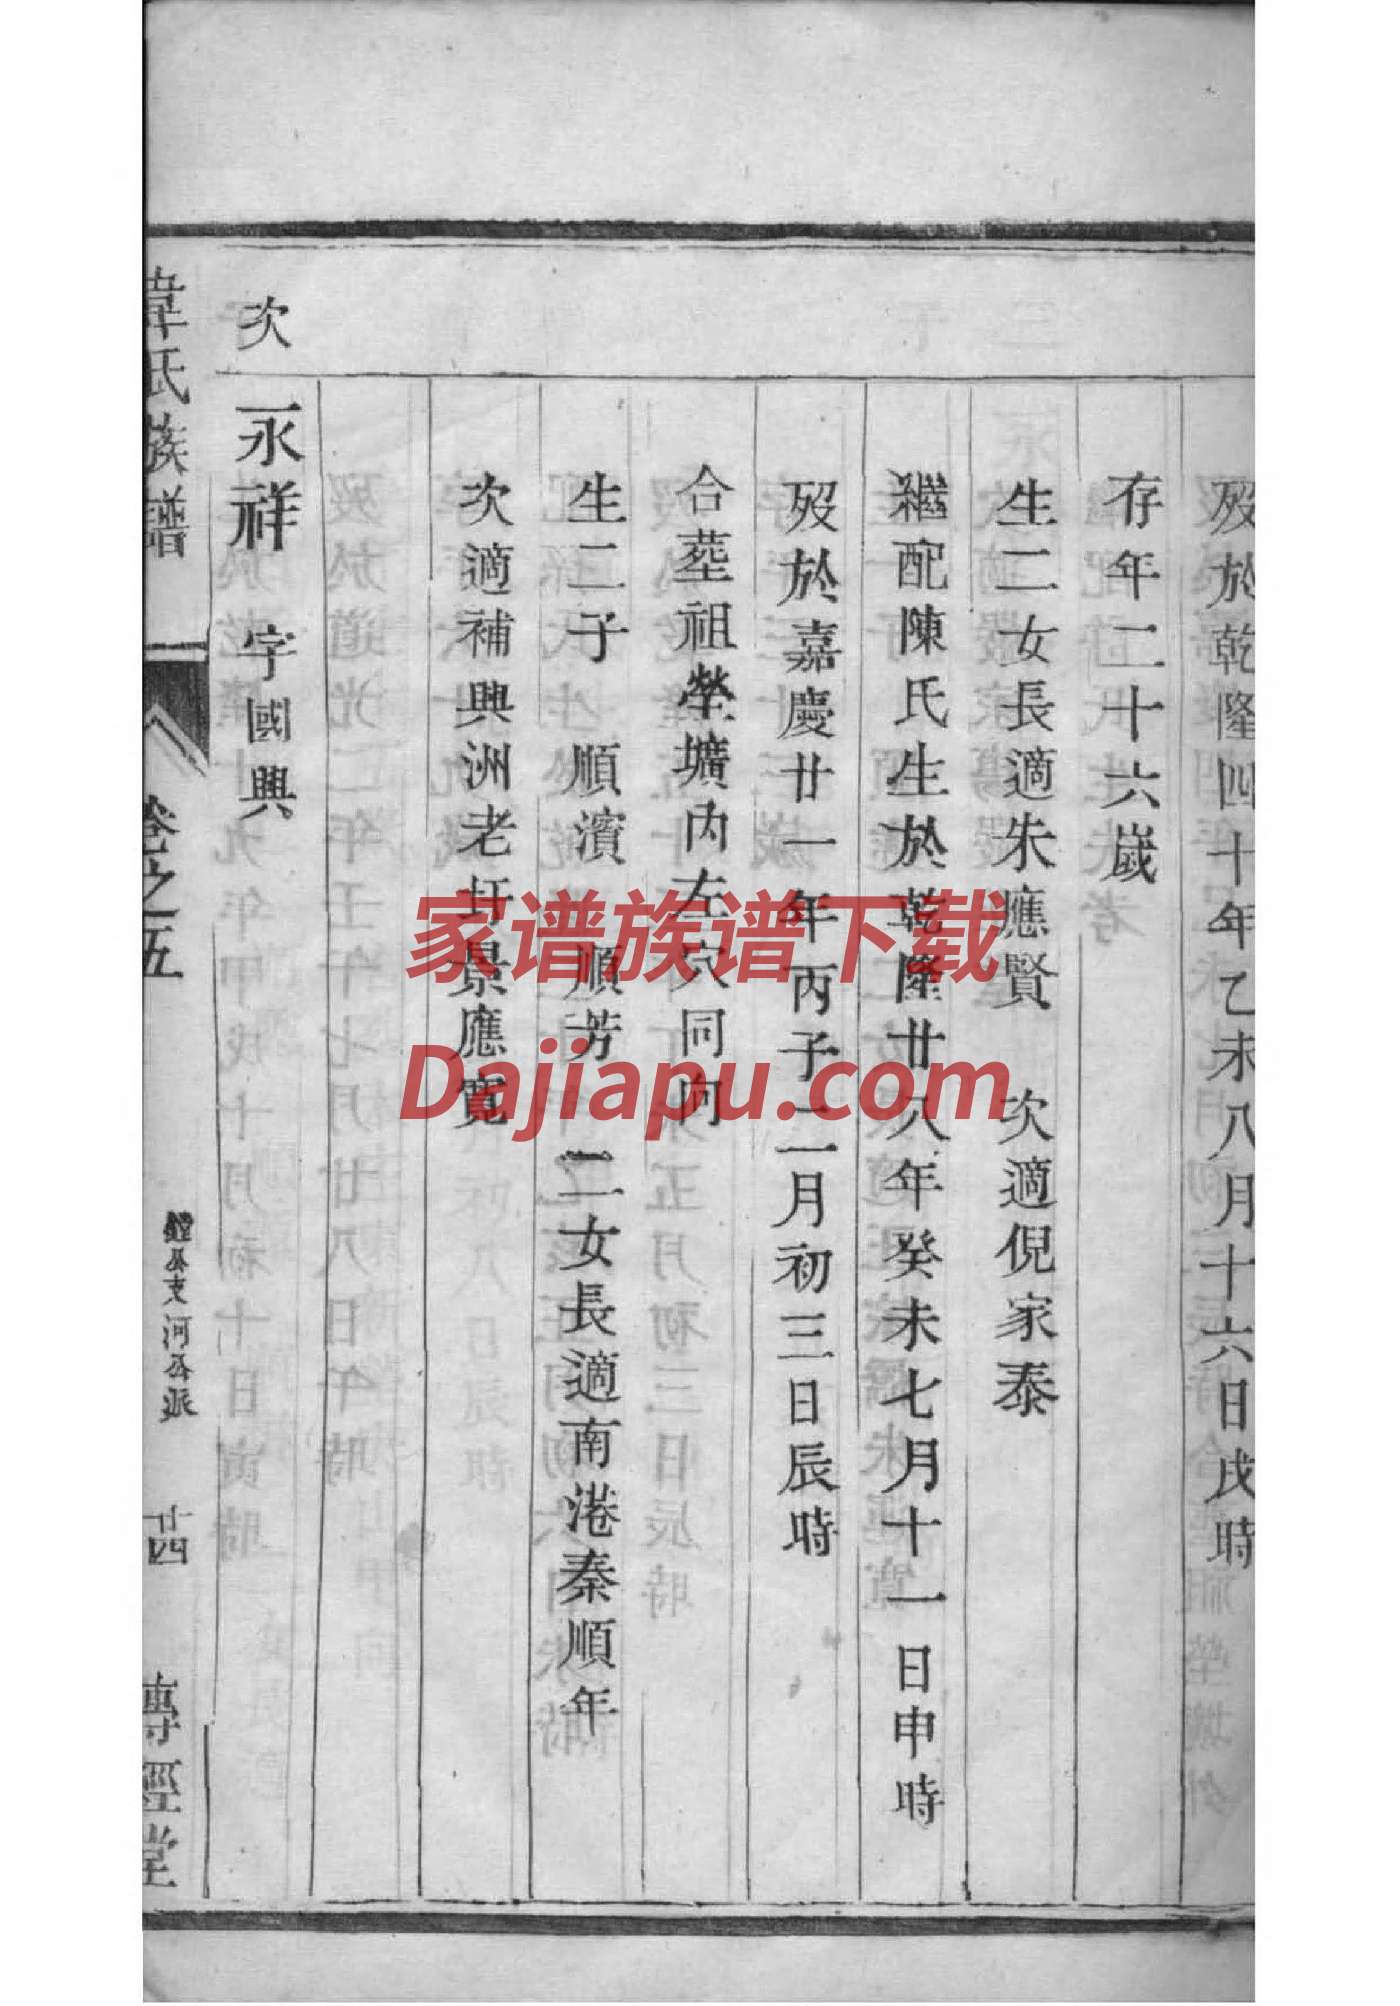 歿於乾隆四十年乙未八月十六日戌時
存年二十六歲
生二女長適朱應賢 次適倪家泰
繼配陳氏生於乾隆廿八年癸未七月十一日申時
歿於嘉慶廿一年丙子二月初三日辰時
合葬祖塋壙內左穴同向
生二子 順濱 順芳 二女長適南港秦順年
次適補興洲老圩景應寬
次 永祥 字國興
韋氏族譜 卷之五 鏜公支河公派 十四 傳經堂
家谱族谱下载
Dajiapu.com